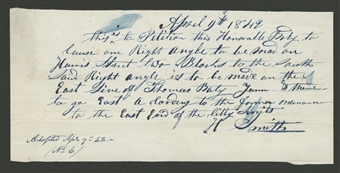 April 9th 1842
this is to Petition this Honorable Body to
Cause one Right Angle to be mad on
Harris Street two Blocks to the South
said Right angle is to be made on the
East Line of Thomas
to go East A cordin to the former
to the East End of the City
Smith
Adopted Apr 9th 42
(No 6)